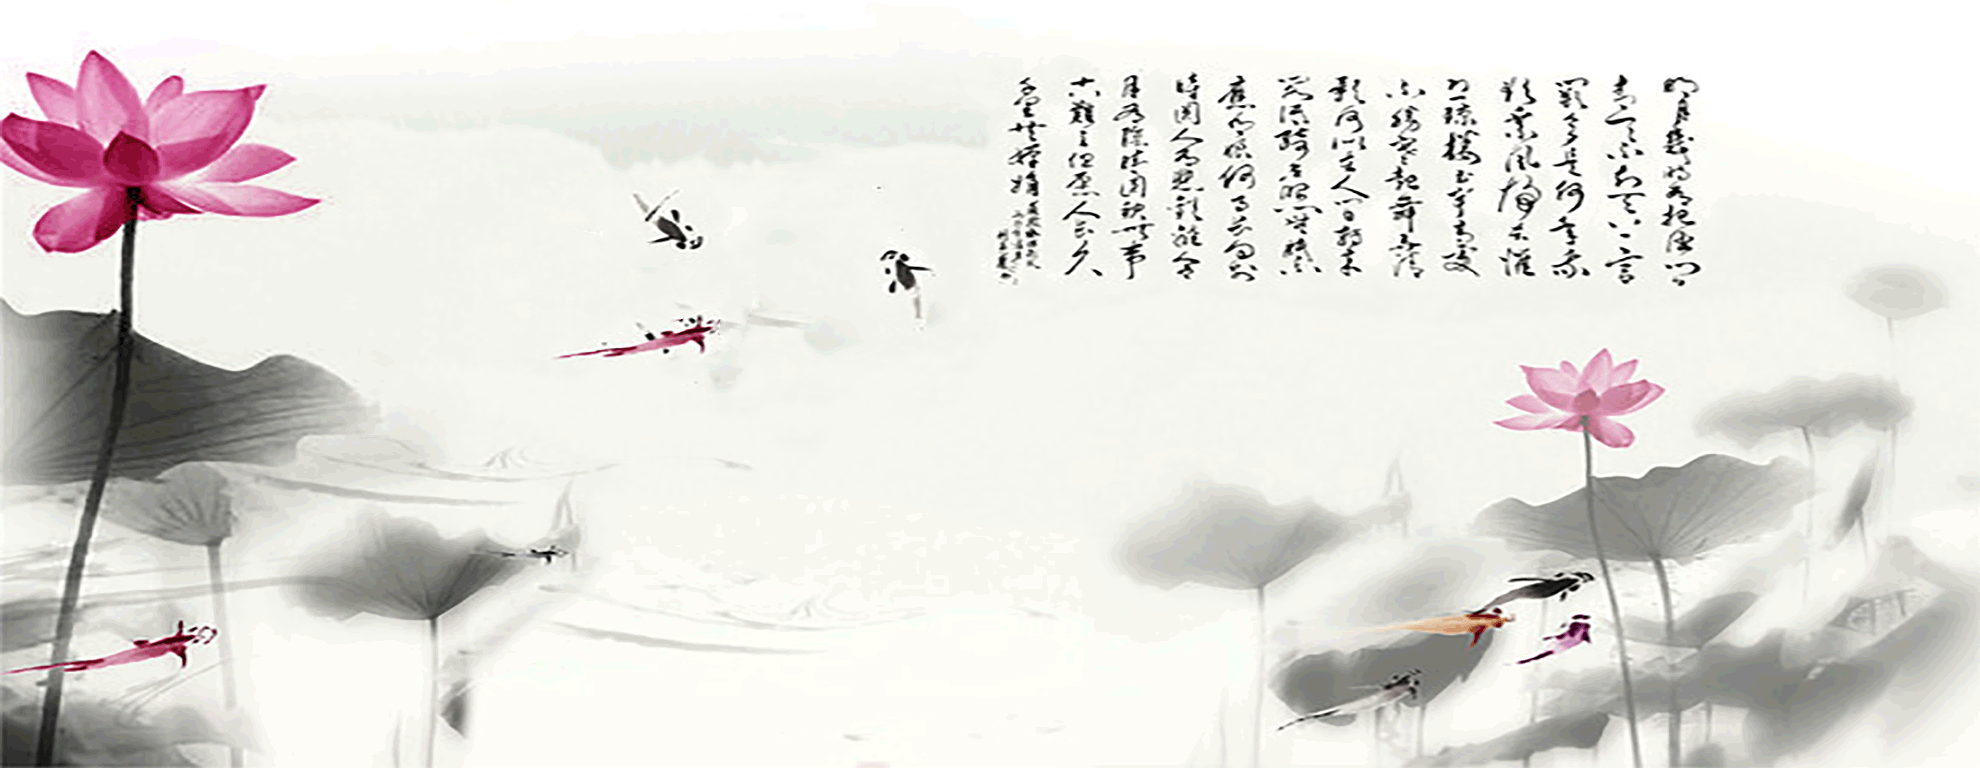 明月幾時有把酒問
青天不知天上宮
闕今夕是何年我
欲乘風歸去惟
恐瓊樓玉宇高處
不勝寒起舞弄清
影何似在人間轉朱
閣低綺戶照無眠不
應有恨何事長向別
時圓人有悲歡離合
月有陰晴圓缺此事
古難全但願人長久
千里共嬋娟